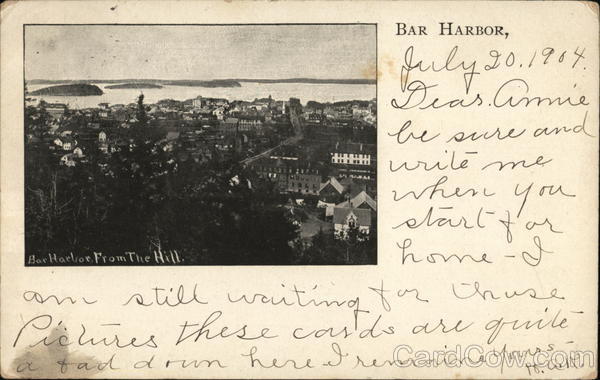 BAR HARBOR,
July 20, 1904.
Dear Annie
be sure and
write me
when you
start for
home - I
am still waiting for those
Pictures these cards are quite
a fad down here I remain Yours -
Bar Harbor, From The Hill.
CardCow.com